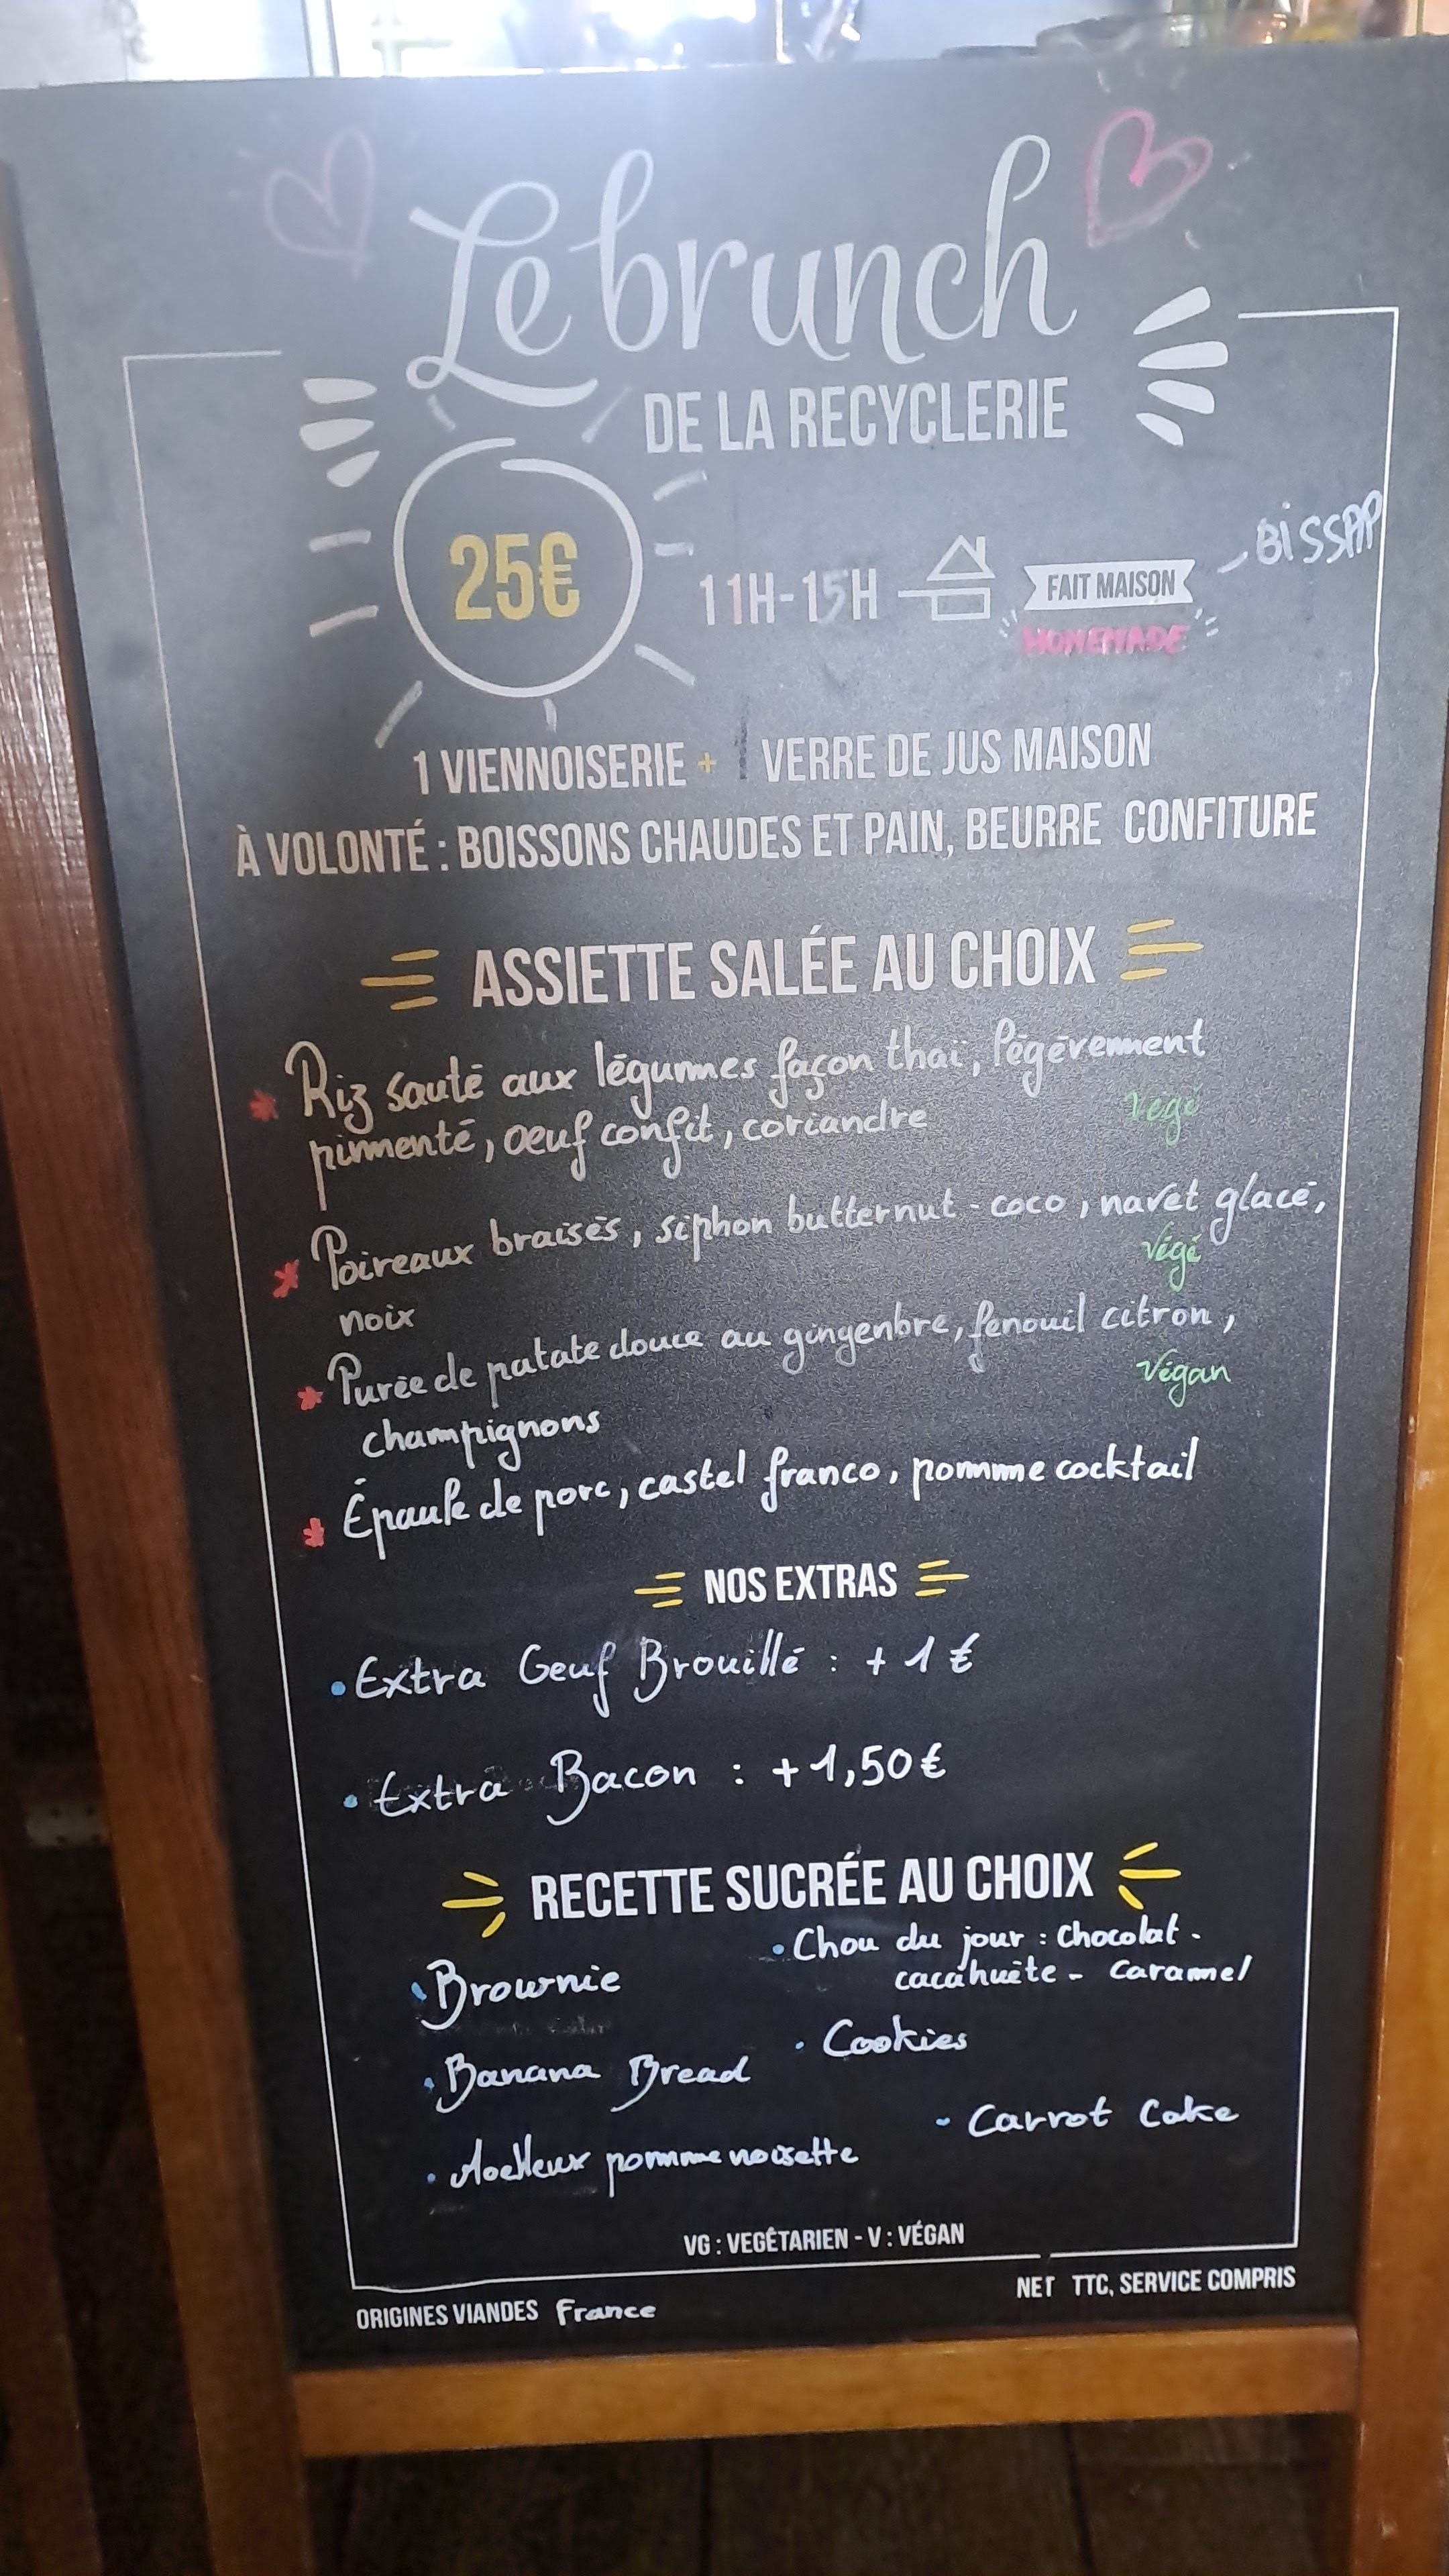 Le brunch
DE LA RECYCLERIE
25€
11H-15H
FAIT MAISON
BISSAP
HOMEMADE
1 VIENNOISERIE + 1 VERRE DE JUS MAISON
À VOLONTÉ : BOISSONS CHAUDES ET PAIN, BEURRE CONFITURE
ASSIETTE SALÉE AU CHOIX
* Riz sauté aux légumes façon thaï, légèrement
pimenté, œuf confit, coriandre
Végé
* Poireaux braisés, siphon butternut - coco, navet glacé,
noix
Végé
* Purée de patate douce au gingenbre, fenouil citron,
champignons
Végan
* Épaule de porc, castel franco, pomme cocktail
NOS EXTRAS
• Extra Oeuf Brouillé : + 1 €
• Extra Bacon : + 1,50 €
RECETTE SUCRÉE AU CHOIX
• Brownie
• Banana Bread
• Moelleux pomme noisette
• Chou du jour : Chocolat -
cacahuète - Caramel
• Cookies
• Carrot Cake
VG : VEGÉTARIEN - V : VÉGAN
NET TTC, SERVICE COMPRIS
ORIGINES VIANDES France